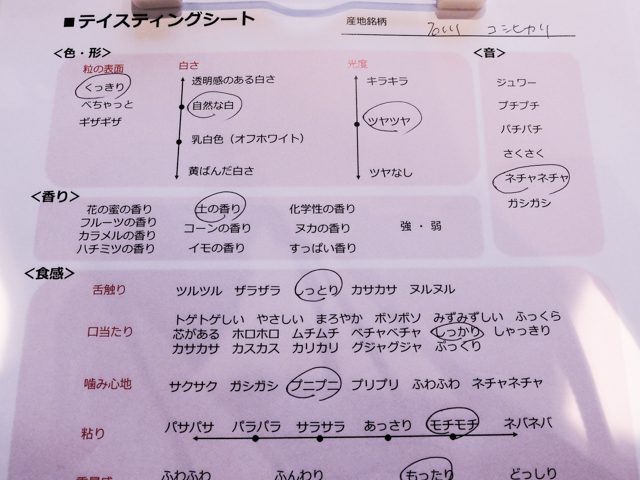 ■テイスティングシート
産地銘柄 石川 コシヒカリ
<色・形>
<音>
粒の表面 白さ 光度
くっきり
べちゃっと
ギザギザ
透明感のある白さ
自然な白
乳白色（オフホワイト）
黄ばんだ白さ
キラキラ
ツヤツヤ
ツヤなし
ジュワー
プチプチ
パチパチ
さくさく
ネチャネチャ
ガシガシ
<香り>
花の蜜の香り 土の香り 化学性の香り
フルーツの香り コーンの香り ヌカの香り 強・弱
カラメルの香り
ハチミツの香り イモの香り すっぱい香り
<食感>
舌触り ツルツル ザラザラ しっとり カサカサ ヌルヌル
トゲトゲしい やさしい まろやか ボソボソ みずみずしい ふっくら
口当たり 芯がある ホロホロ ムチムチ ベチャベチャ しっかり しゃっきり
カサカサ カスカス カリカリ グジャグジャ ぷっくり
噛み心地 サクサク ガシガシ プニプニ プリプリ ふわふわ ネチャネチャ
粘り パサパサ パラパラ サラサラ あっさり モチモチ ネバネバ
ふわふわ ふんわり もったり どっしり